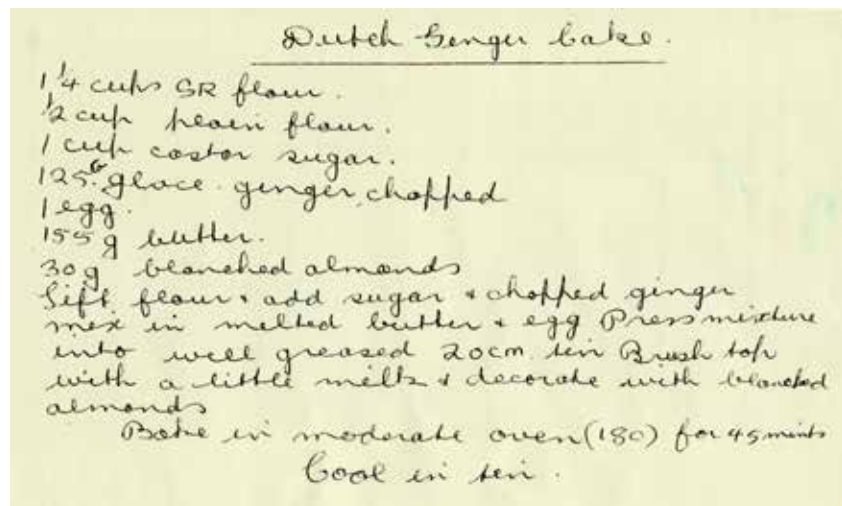 Dutch Ginger Cake.
1 1/4 cups SR flour.
1/2 cup plain flour.
1 cup castor sugar.
125G glace ginger, chopped
1 egg.
155g butter.
30g blanched almonds
Sift flour & add sugar & chopped ginger
mix in melted butter & egg Press mixture
into well greased 20cm tin Brush top
with a little milk & decorate with blanched
almonds
Bake in moderate oven (180) for 45 mints
Cool in tin.